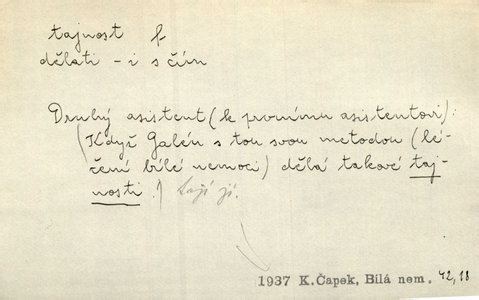 tajnost f.
dělati -i s čím
Druhý asistent (k prvnímu asistentovi):
(Když Galén s tou svou metodou (lé-
čení bílé nemoci) dělá takové taj-
nosti!) Tají ji.
1937 K.Čapek, Bílá nem. 42,18